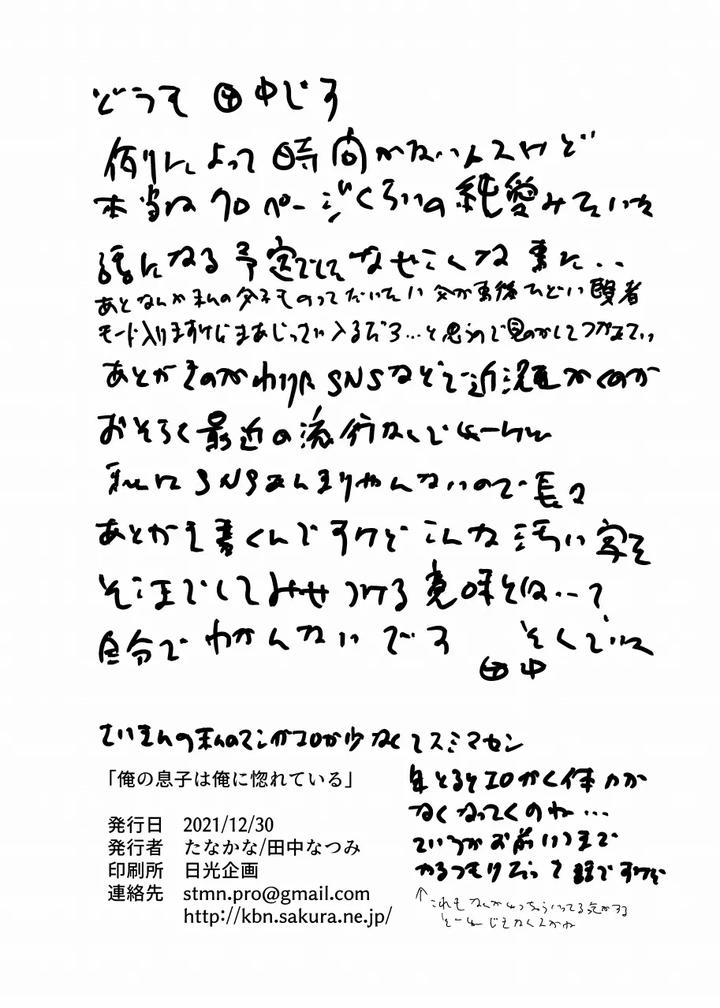 どうも 田中です
例によって時間がないんスけど
本当は70ページくらいの純愛みたいな
話になる予定でしてなぜこんな事に‥
あとなんか私の父子ものってだいたい父が事後ひどい賢者
モード入りますけどまあじっさい入るだろ…と思うので見のがしてつかぁさい
あとがきのかわりに SNSなどで近況かくのが
おそらく最近の流行なんでしょうけど
私は SNSあんまりやんないので長々
あとがき書くんですけど こんな汚い字を
そこまでして見せつける意味とは‥って
自分で わかんないです
田中
さいきんの私のマンガエロが少なくてスミマセン
年とるとエロかく体力が
なくなってくのね…
ていうかお前いつまで
かるつもりだって話ですけど
↑これもなんか
「俺の息子は俺に惚れている」
発行日 2021/12/30
発行者 たなかな/田中なつみ
印刷所 日光企画
連絡先 stmn.pro@gmail.com
http://kbn.sakura.ne.jp/